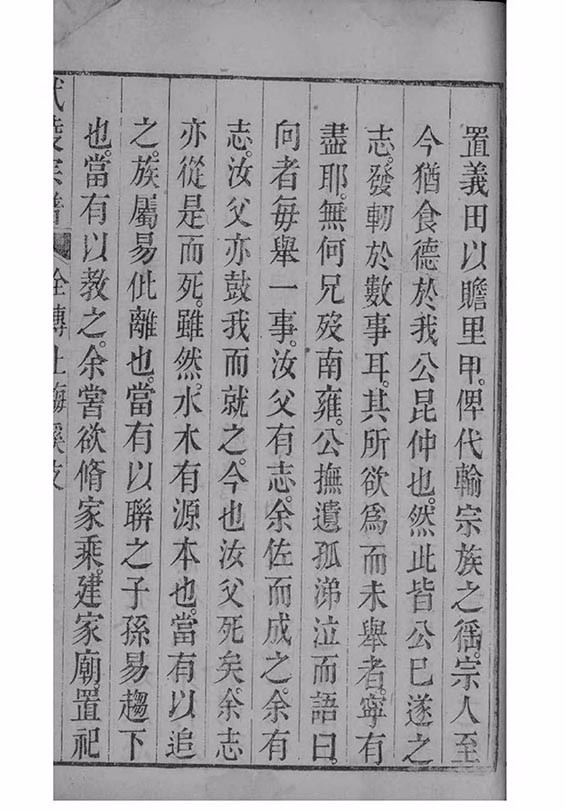 置義田以贍里甲。俾代輸宗族之徭。宗人至
今猶食德於我公昆仲也。然此皆公已遂之
志。發軔於數事耳。其所欲爲而未舉者。寧有
盡耶。無何兄歿南雍。公撫遺孤涕泣而語曰。
向者每舉一事。汝父有志。余佐而成之。余有
志。汝父亦鼓我而就之。今也汝父死矣。余志
亦從是而死。雖然。水木有源本也。當有以追
之。族屬易仳離也。當有以聯之子孫易趨下
也。當有以教之。余嘗欲脩家乘。建家廟。置祀